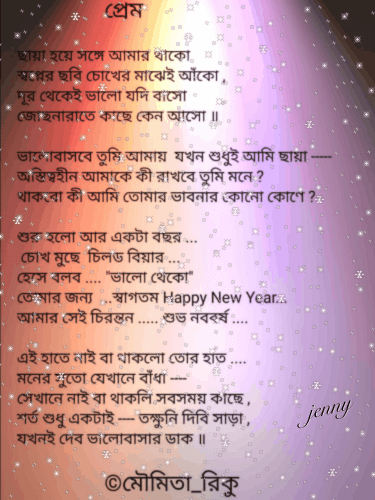 প্রেম
ছায়া হয়ে সঙ্গে আমার থাকো
স্বপ্নের ছবি চোখের মাঝেই আঁকো ,
দূর থেকেই ভালো যদি বাসো
জোছনারাতে কাছে কেন আসো ॥
ভালোবাসবে তুমি আমায় যখন শুধুই আমি ছায়া -----
অস্তিত্বহীন আমাকে কী রাখবে তুমি মনে ?
থাকবো কী আমি তোমার ভাবনার কোনো কোণে ?
শুরু হলো আর একটা বছর ...
চোখ মুছে চিলড বিয়ার ...
হেসে বলব .... "ভালো থেকো"
তোমার জন্য ... স্বাগতম Happy New Year...
আমার সেই চিরন্তন ...... শুভ নববর্ষ ....
এই হাতে নাই বা থাকলো তোর হাত ....
মনের সুতো যেখানে বাঁধা ----
সেখানে নাই বা থাকলি সবসময় কাছে ,
শর্ত শুধু একটাই ---- তক্ষুনি দিবি সাড়া ,
যখনই দেব ভালোবাসার ডাক ॥
jenny
©মৌমিতা_রিকু